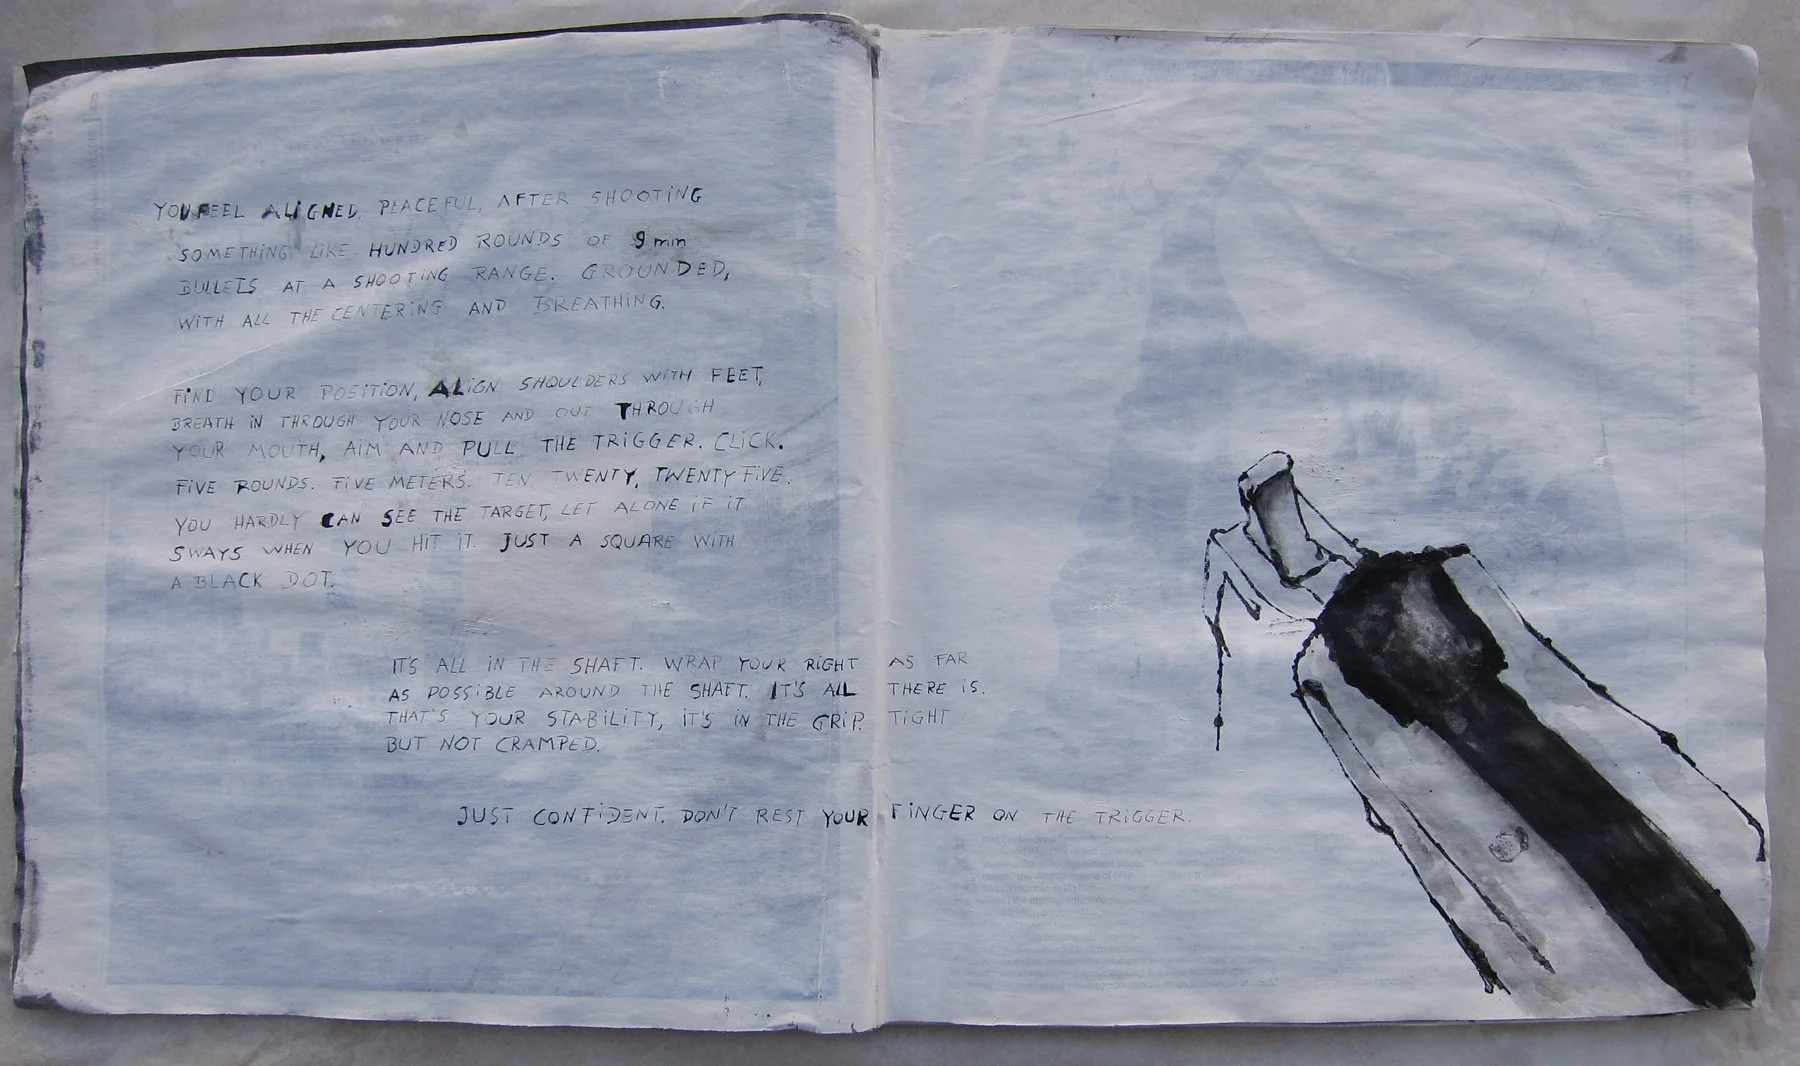 YOU FEEL ALIGNED, PEACEFUL, AFTER SHOOTING
SOMETHING LIKE HUNDRED ROUNDS OF 9mm
BULLETS AT A SHOOTING RANGE. GROUNDED,
WITH ALL THE CENTERING AND BREATHING.
FIND YOUR POSITION, ALIGN SHOULDERS WITH FEET,
BREATH IN THROUGH YOUR NOSE AND OUT THROUGH
YOUR MOUTH, AIM AND PULL THE TRIGGER. CLICK.
FIVE ROUNDS. FIVE METERS. TEN, TWENTY, TWENTY FIVE.
YOU HARDLY CAN SEE THE TARGET, LET ALONE IF IT
SWAYS WHEN YOU HIT IT. JUST A SQUARE WITH
A BLACK DOT.
IT'S ALL IN THE SHAFT. WRAP YOUR RIGHT AS FAR
AS POSSIBLE AROUND THE SHAFT. IT'S ALL THERE IS.
THAT'S YOUR STABILITY, IT'S IN THE GRIP. TIGHT
BUT NOT CRAMPED.
JUST CONFIDENT. DON'T REST YOUR FINGER ON THE TRIGGER.